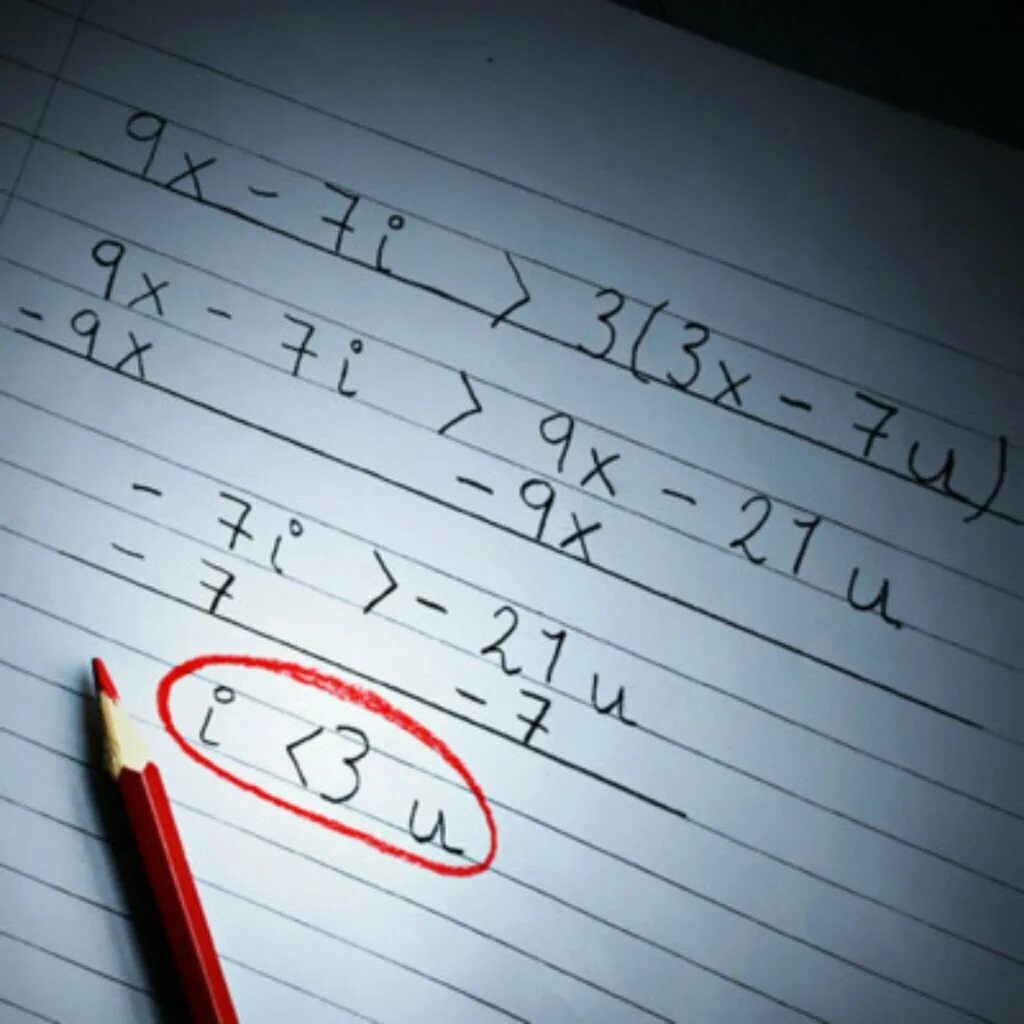 9x - 7i > 3(3x - 7u)
9x - 7i > 9x - 21u
-9x -9x
-7i > -21u
-7 -7
i <3 u